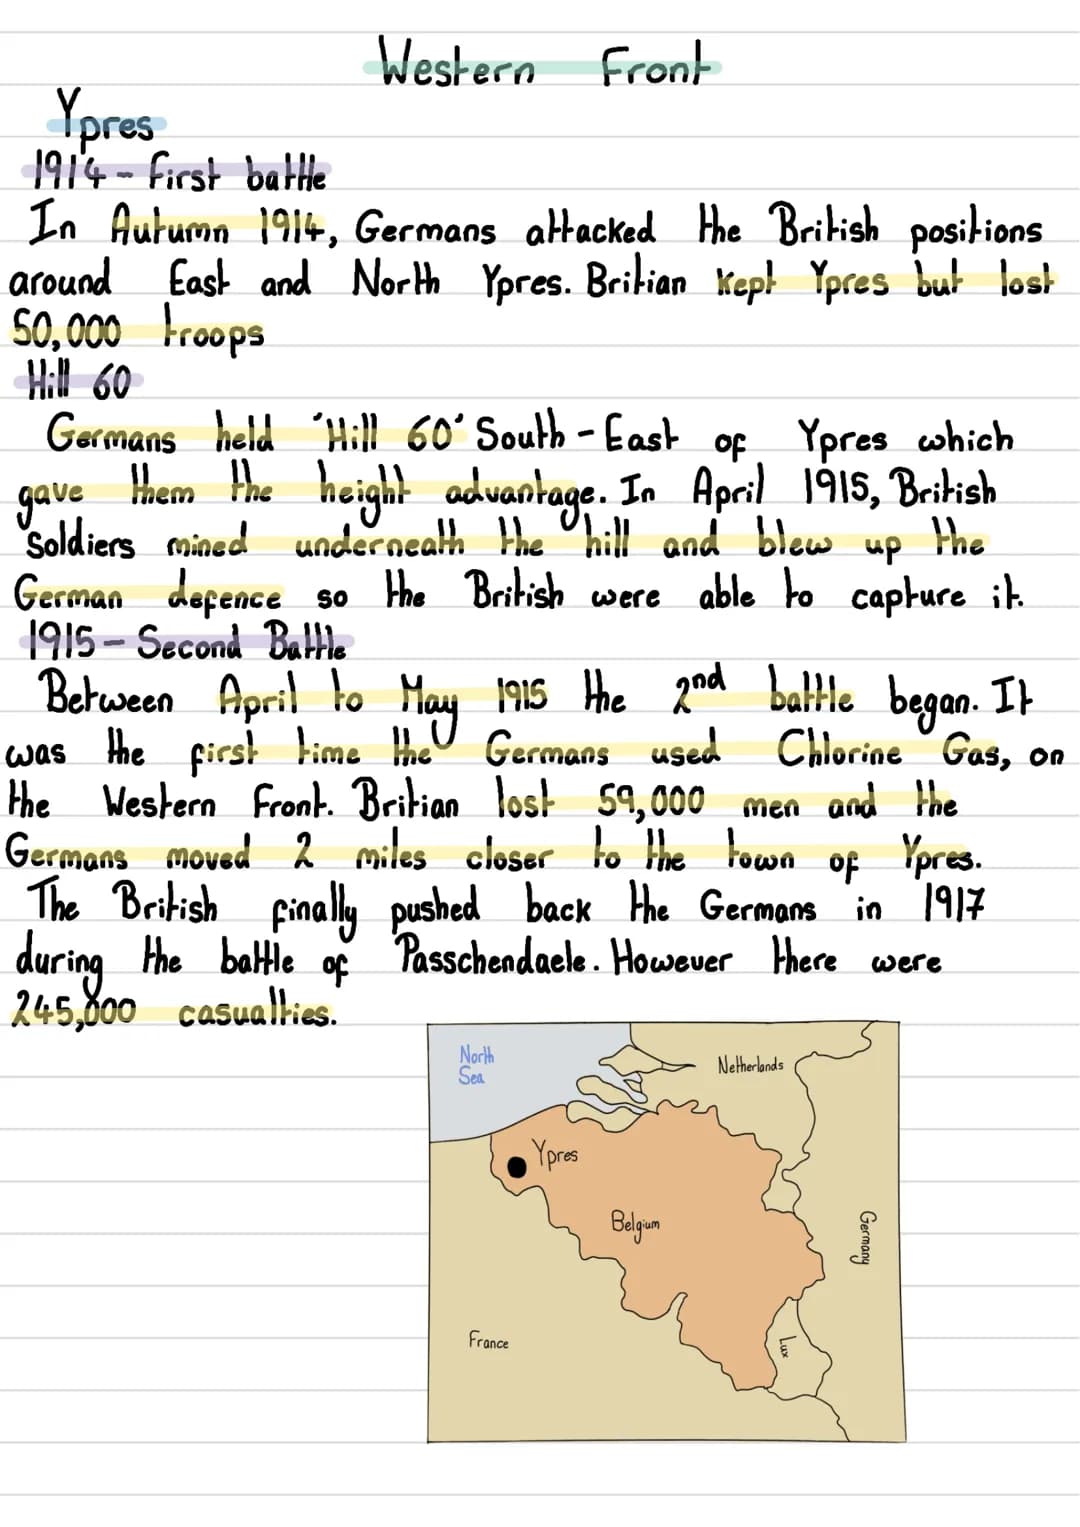 Western Front
Ypres
1914 - First battle
In Autumn 1914, Germans attacked the British positions
around East and North Ypres. Britian kept Ypres but lost
50,000 troops
Hill 60
Germans held 'Hill 60' South-East of Ypres which
gave them the height advantage. In April 1915, British
Soldiers mined underneath the hill and blew up the
German defence so the British were able to capture it.
1915 - Second Battle
Between April to May 1915 the 2nd battle began. It
was the first time the Germans used Chlorine Gas, on
the Western Front. Britian lost 59,000 men and the
Germans moved 2 miles closer to the town of Ypres.
The British finally pushed back the Germans in 1917
during the battle of Passchendaele. However there were
245,000 casualties.
North
Sea
Netherlands
Ypres
Belgium
Germany
France
Lux